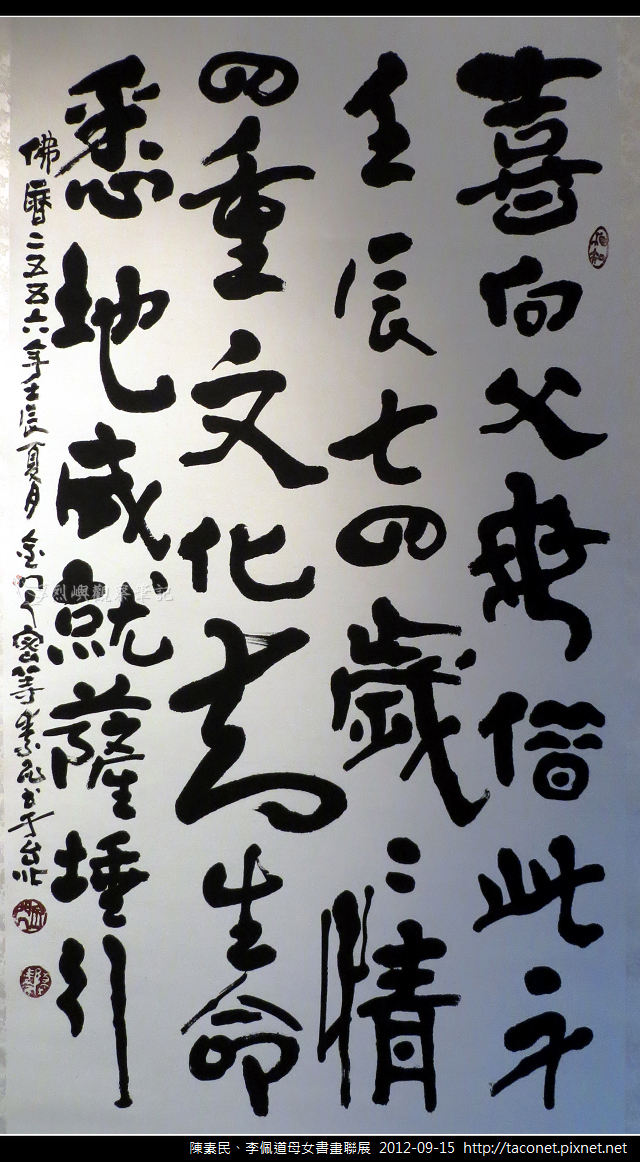 喜向父母借此身
壬辰七四歲々情
四重文化生命
悉地成就薩埵行
佛曆二五五六年壬辰夏月金門人密等素民書于台北
烈嶼觀察筆記
陳素民、李佩道母女書畫聯展 2012-09-15 http://taconet.pixnet.net